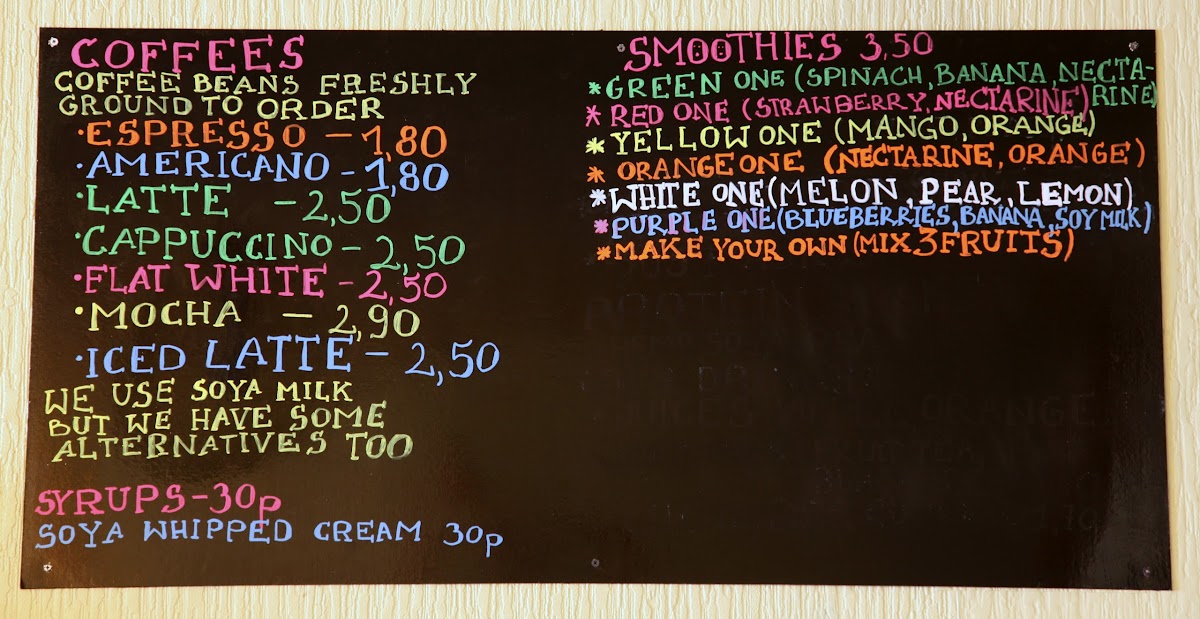 COFFEES
COFFEE BEANS FRESHLY
GROUND TO ORDER
·ESPRESSO – 1,80
·AMERICANO – 1,80
·LATTE – 2,50
·CAPPUCCINO – 2,50
·FLAT WHITE – 2,50
·MOCHA – 2,90
·ICED LATTE – 2,50
WE USE SOYA MILK
BUT WE HAVE SOME
ALTERNATIVES TOO
SYRUPS – 30p
SOYA WHIPPED CREAM 30p
SMOOTHIES 3,50
*GREEN ONE (SPINACH, BANANA, NECTA-
RINE)
*RED ONE (STRAWBERRY, NECTARINE)
*YELLOW ONE (MANGO, ORANGE)
*ORANGE ONE (NECTARINE, ORANGE)
*WHITE ONE (MELON, PEAR, LEMON)
*PURPLE ONE (BLUEBERRIES, BANANA, SOY MILK)
*MAKE YOUR OWN (MIX 3 FRUITS)